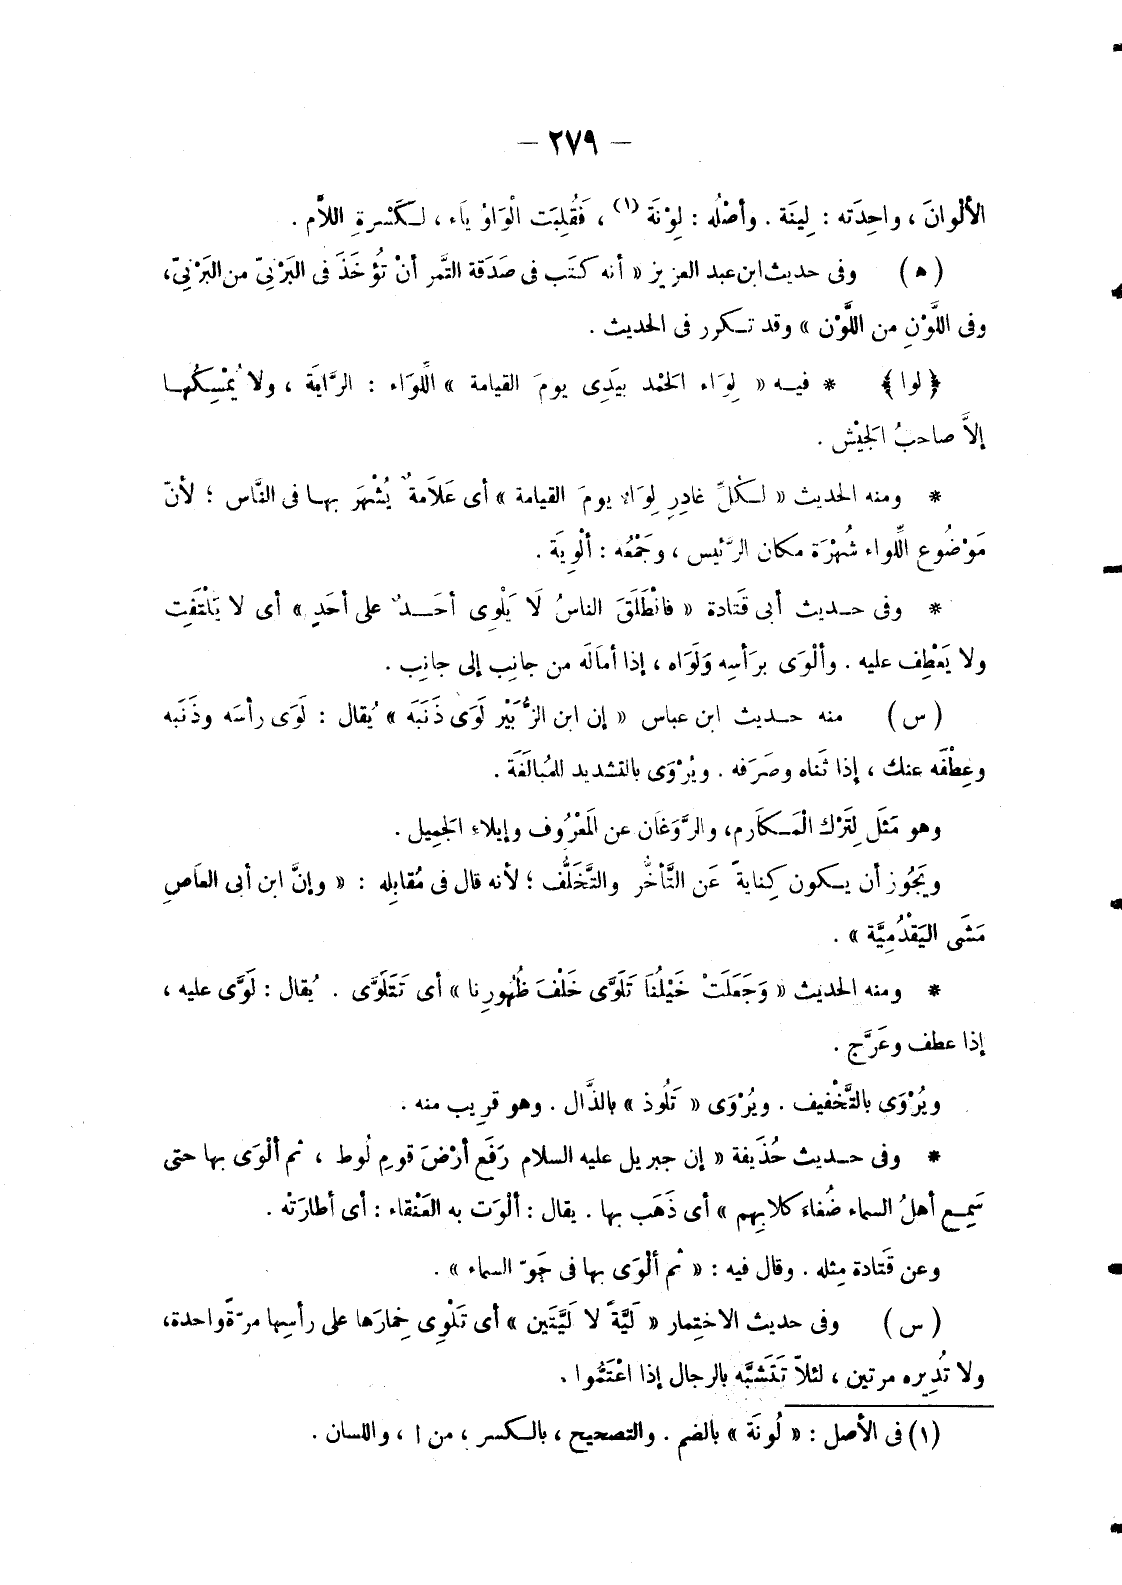 — ٢٧٩ —
الألوانَ ، واحِدَته : لِينَة . وأصْلُه : لِوْنَة (١) ، فَقُلِبَت الْوَاوْ يَاء ، لكَسْرةِ اللاَّم .
( ه ) وفى حديث ابن عبد العزيز « أنه كتَب فى صَدَقة التَّمر أنْ تُؤخَذَ فى البَرْنِىّ من البَرْنِىّ ،
وفى اللَّوْنِ من اللَّوْن » وقد تكرر فى الحديث .
﴿ لوا ﴾ * فيه « لِوَاء الحَمْد بيَدِى يومَ القيامة » اللِّوَاء : الرَّايَة ، ولا يُمْسِكُها
إلاَّ صاحبُ الجَيْش .
* ومنه الحديث « لكُلِّ غادِرٍ لِوَاء يومَ القيامة » أى عَلاَمةٌ يُشْهَر بها فى النَّاس ؛ لأنّ
مَوْضُوع اللِّواء شُهْرَة مكان الرَّئيس ، وجَمْعُه : ألْوِيَة .
* وفى حديث أبى قَتادة « فانْطَلَقَ الناسُ لَا يَلْوِى أحَدٌ على أحَدٍ » أى لا يَلْتَفِت
ولا يَعْطِف عليه . وألْوَى برَأسِه وَلَوَاه ، إذا أمَالَه من جانِب إلى جانِب .
( س ) منه حديث ابن عباس « إن ابن الزُّبَيْر لَوَى ذَنَبَه » يُقال : لَوَى رأسَه وذَنَبه
وعِطْفَه عنك ، إذا ثَناه وصَرَفه . ويُرْوَى بالتشديد للمُبالَغَة .
وهو مَثَل لِتَرْك الْمَكَارِم ، والرَّوَغَان عن المَعْرُوف وإيلاءِ الجَمِيل .
ويَجُوز أن يكون كِنايةً عَن التَّأخُّر والتَّخَلُّف ؛ لأنه قال فى مُقابِله : « وإنَّ ابن أبى العاَصِ
مَشَى اليَقْدُمِيَّة » .
* ومنه الحديث « وَجَعَلَتْ خَيْلُنَا تَلَوَّى خَلْفَ ظُهُورِنا » أى تَتَلَوَّى . يُقال : لَوَّى عليه ،
إذا عطف وعَرَّج .
ويُرْوَى بالتَّخْفيف . ويُرْوَى « تَلُوذ » بالذَّال . وهو قريب منه .
* وفى حديث حُذَيفة « إن جبريل عليه السلام رَفَع أرْضَ قومِ لُوط ، ثم ألْوَى بها حتى
سَمِع أهلُ السماء ضُغاءَ كلابِهِم » أى ذَهَب بها . يقال : ألْوَت به العَنْقاء : أى أطارَتْه .
وعن قَتادة مِثله . وقال فيه : « ثم ألْوَى بها فى جَوّ السماء » .
( س ) وفى حديث الاختِمار « لَيَّةً لا لَيَّتَين » أى تَلْوِى خِمارَها على رأسِها مرّةً واحدة ،
ولا تُدِيره مرتين ، لئلاّ تَتَشبَّه بالرجال إذا اعْتَمُّوا .
(١) فى الأصل : « لُونَة » بالضم . والتصحيح ، بالكسر ، من ا ، واللسان .